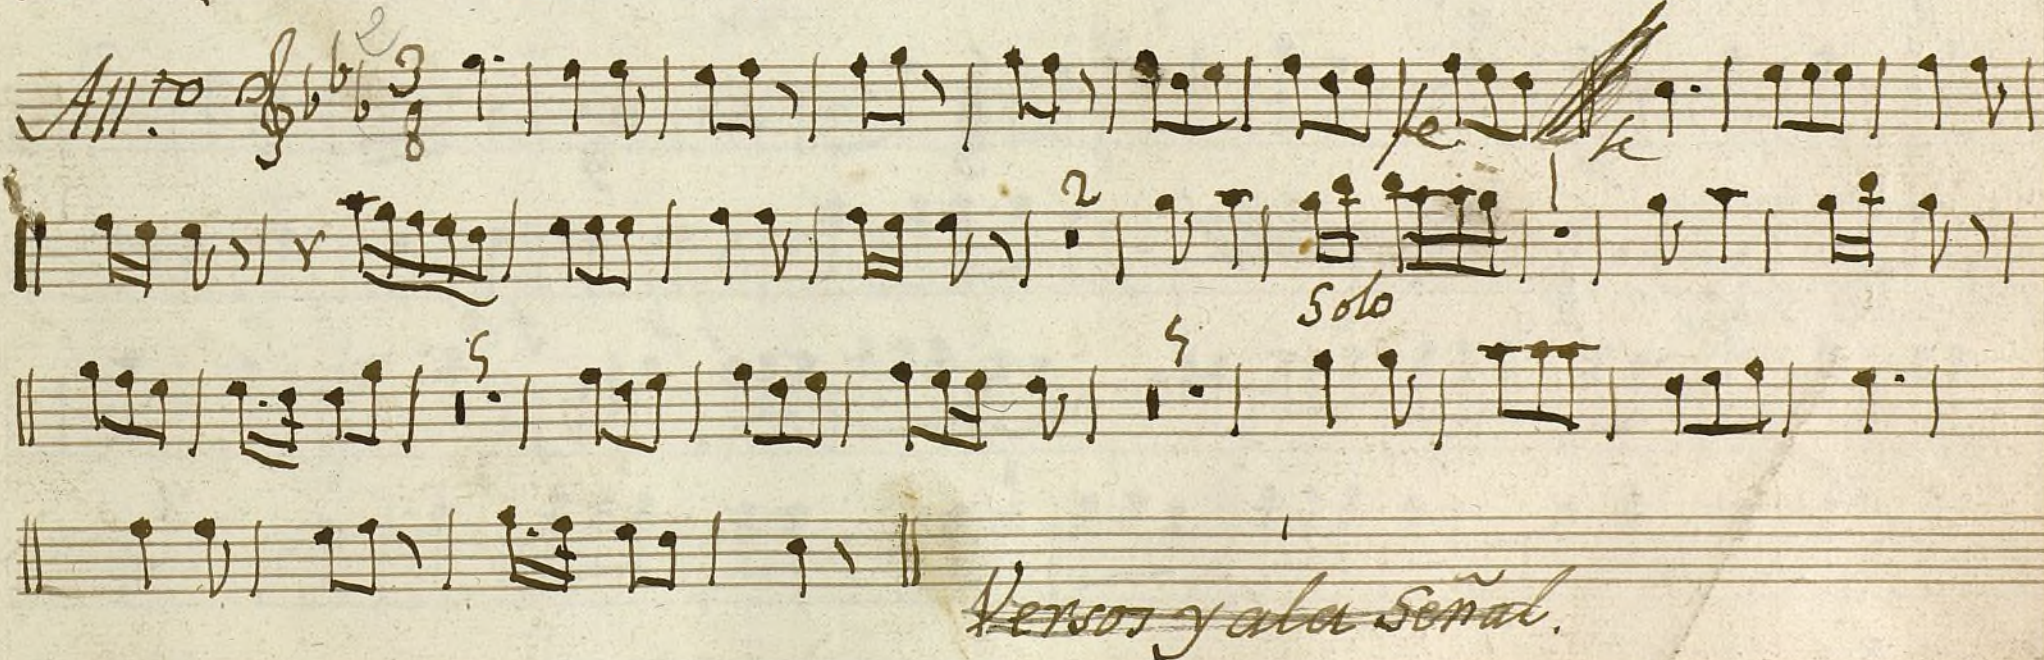 All.to 2 3 8
fe fe
2
Solo
5 5
Versos y a la Señal.